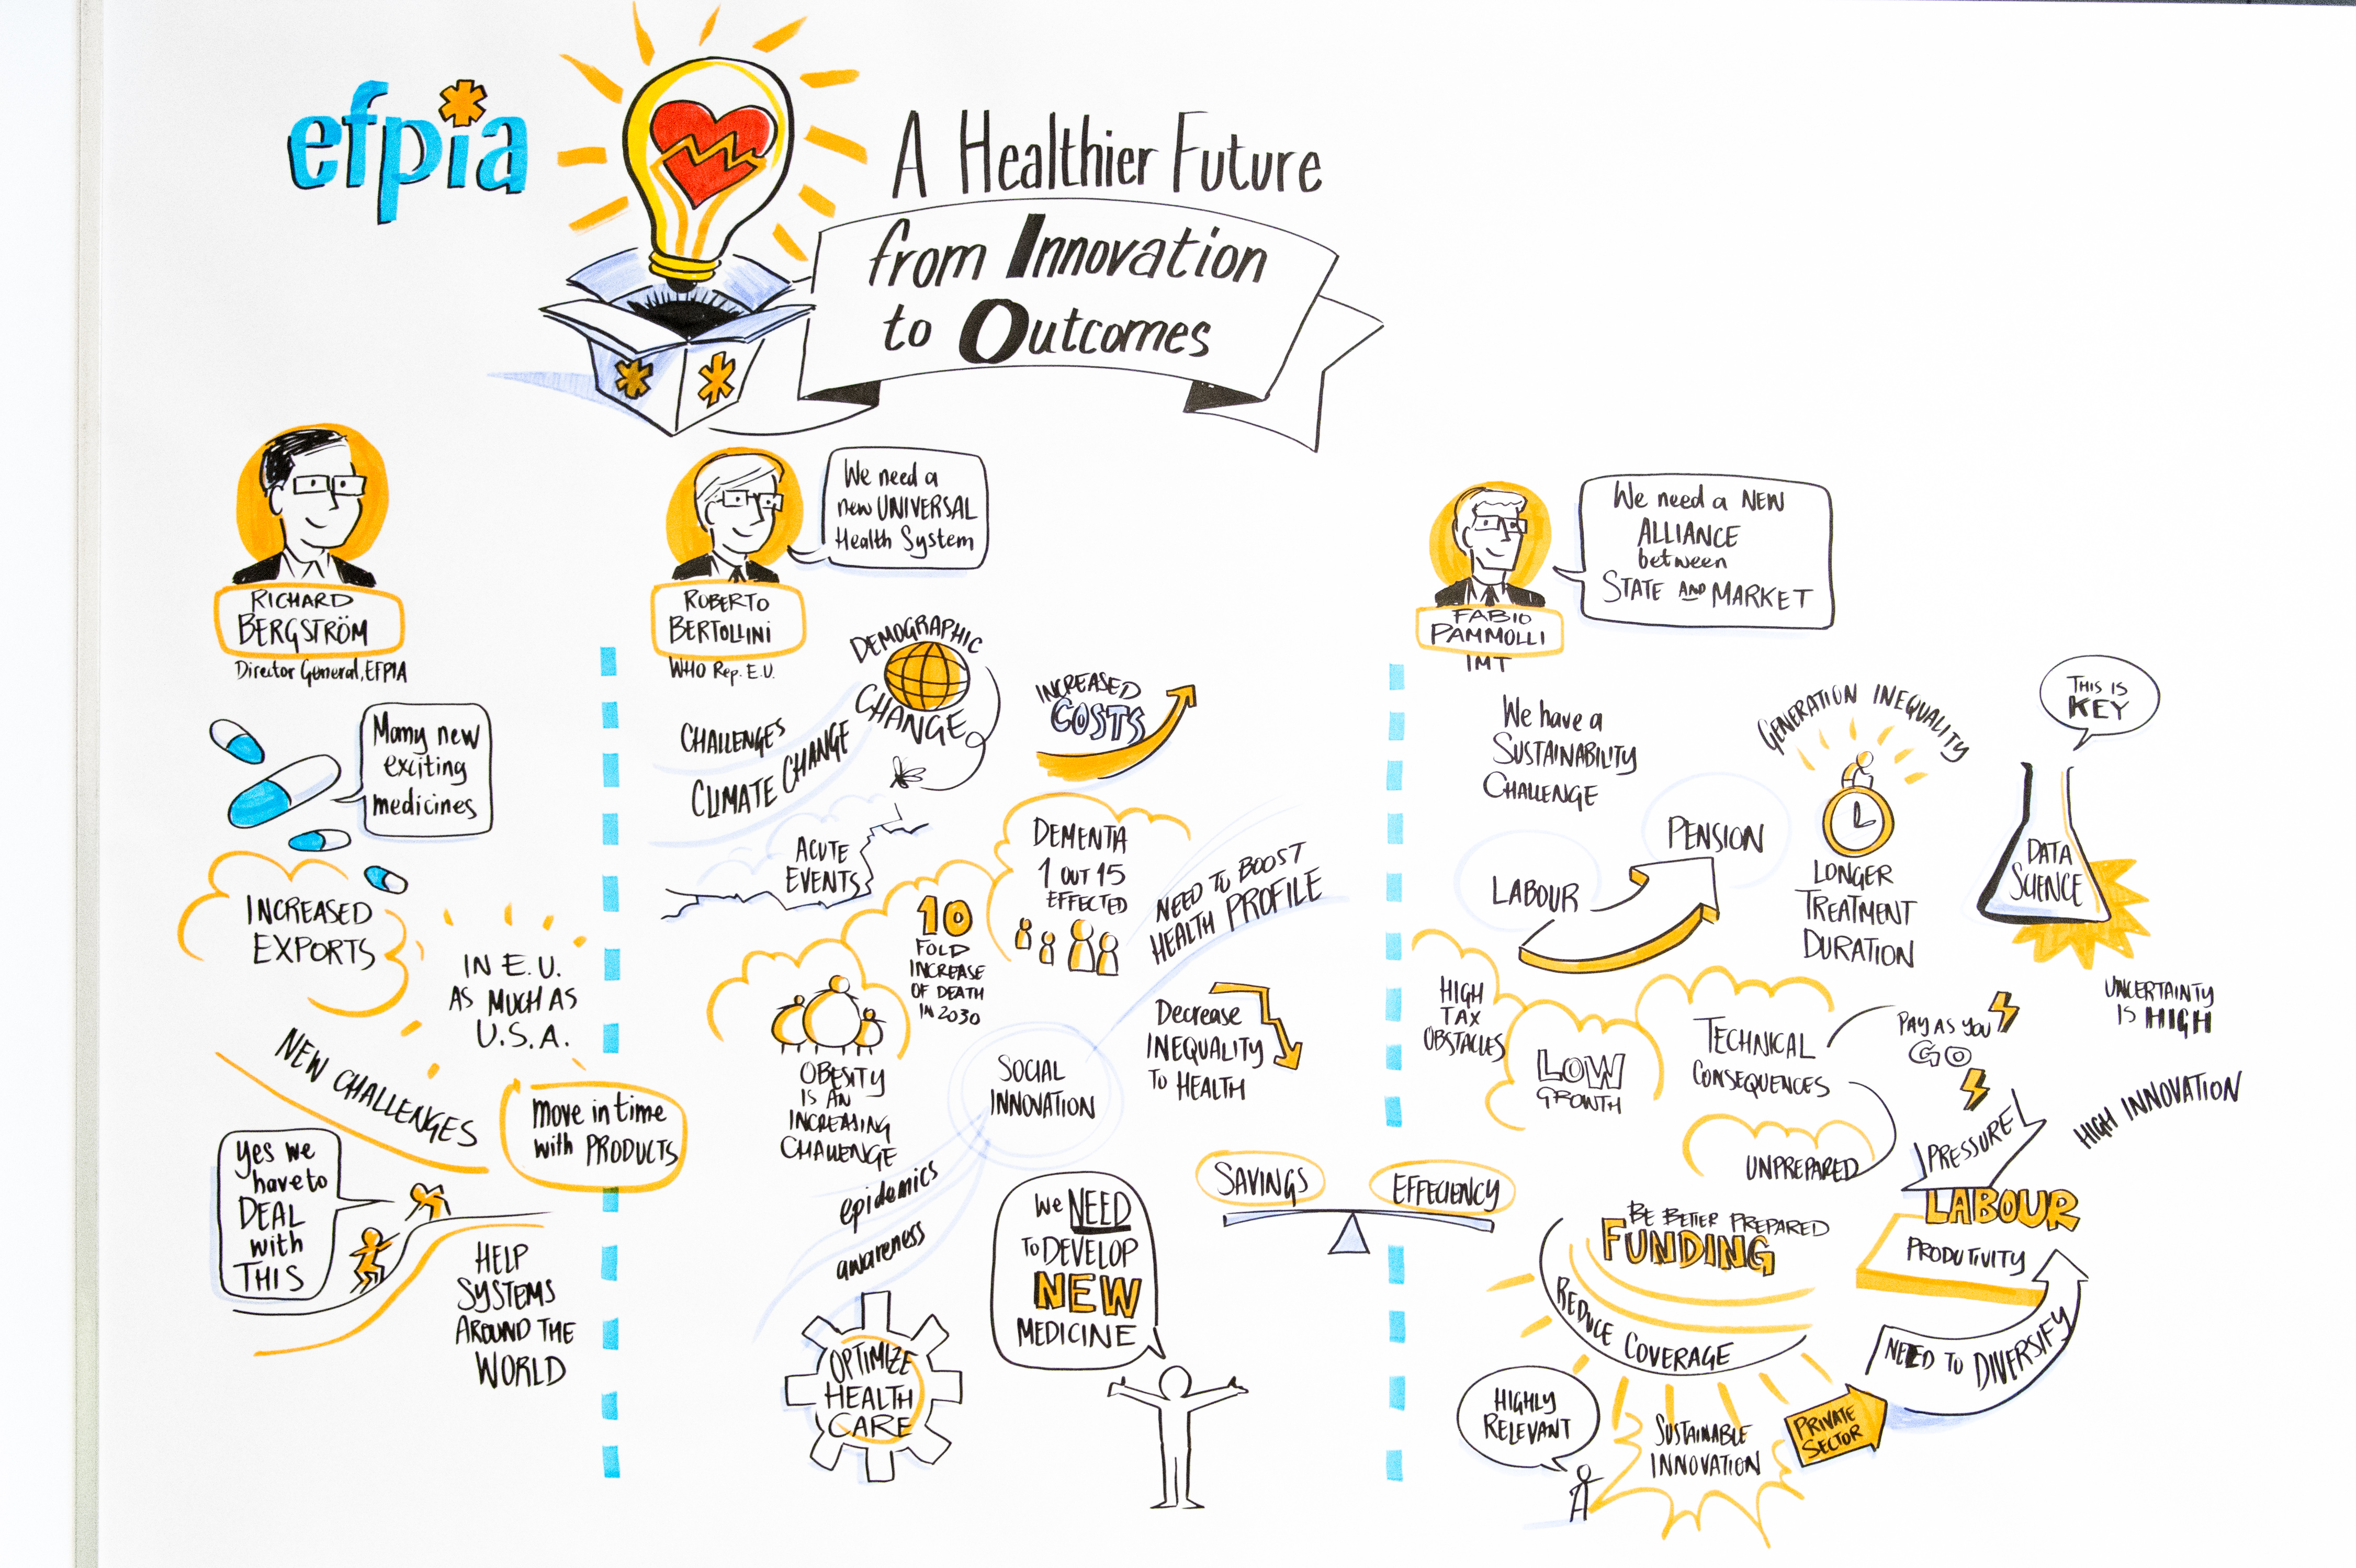 efpia
A Healthier Future
from Innovation
to Outcomes
RICHARD
BERGSTRÖM
Director General, EFPIA
Many new
exciting
medicines
INCREASED
EXPORTS
IN E.U.
AS MUCH AS
U.S.A.
NEW CHALLENGES
move in time
with PRODUCTS
Yes we
have to
DEAL
with
THIS
HELP
SYSTEMS
AROUND THE
WORLD
ROBERTO
BERTOLLINI
WHO Rep. E.U.
We need a
new UNIVERSAL
Health System
DEMOGRAPHIC
CHANGE
CHALLENGES
CLIMATE CHANGE
INCREASED
COSTS
ACUTE
EVENTS
DEMENTIA
1 OUT 15
EFFECTED
10
FOLD
INCREASE
OF DEATH
IN 2030
NEED TO BOOST
HEALTH PROFILE
OBESITY
IS AN
INCREASING
CHALLENGE
SOCIAL
INNOVATION
Decrease
INEQUALITY
TO HEALTH
epidemics
awareness
OPTIMIZE
HEALTH
CARE
We NEED
TO DEVELOP
NEW
MEDICINE
SAVINGS
EFFECIENCY
FABIO
PAMMOLLI
IMT
We need a NEW
ALLIANCE
between
STATE AND MARKET
We have a
SUSTAINABILITY
CHALLENGE
LABOUR
PENSION
GENERATION INEQUALITY
LONGER
TREATMENT
DURATION
THIS IS
KEY
DATA
SCIENCE
HIGH
TAX
OBSTACLES
LOW
GROWTH
TECHNICAL
CONSEQUENCES
UNPREPARED
PAY AS YOU
GO
UNCERTAINTY
IS HIGH
HIGH INNOVATION
PRESSURE
LABOUR
PRODUTIVITY
NEED TO DIVERSIFY
BE BETTER PREPARED
FUNDING
REDUCE COVERAGE
HIGHLY
RELEVANT
SUSTAINABLE
INNOVATION
PRIVATE
SECTOR